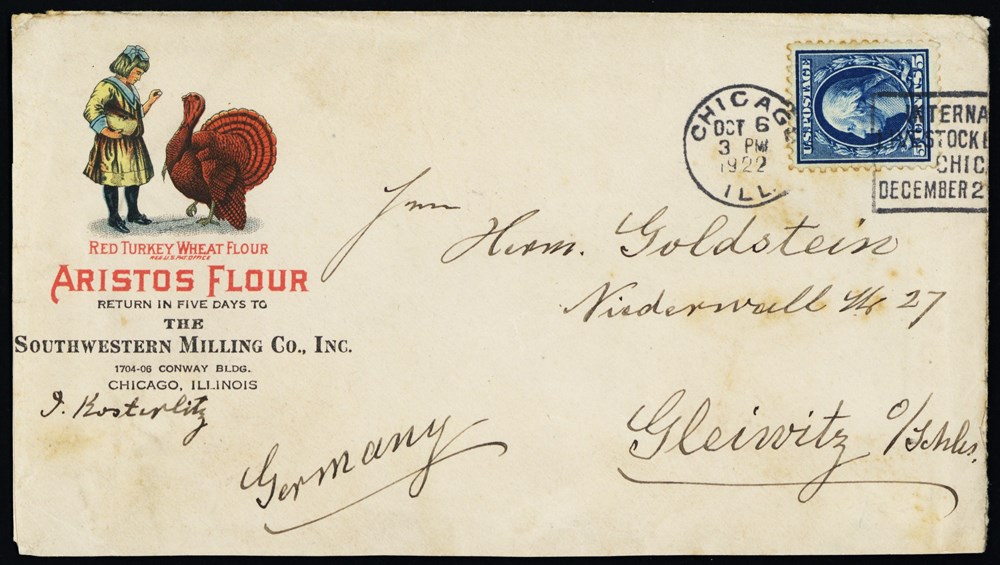 RED TURKEY WHEAT FLOUR
REG. U.S. PAT. OFFICE
ARISTOS FLOUR
RETURN IN FIVE DAYS TO
THE
SOUTHWESTERN MILLING CO., INC.
1704-06 CONWAY BLDG.
CHICAGO, ILLINOIS
J. Kosterlitz
CHICAGO
OCT 6
3 PM
1922
ILL.
U.S. POSTAGE
5 CENTS 5
INTERNA
CHIC
DECEMBER 2
Herrn. Goldstein
Niederwall Str 27
Gleiwitz O/Schles.
Germany